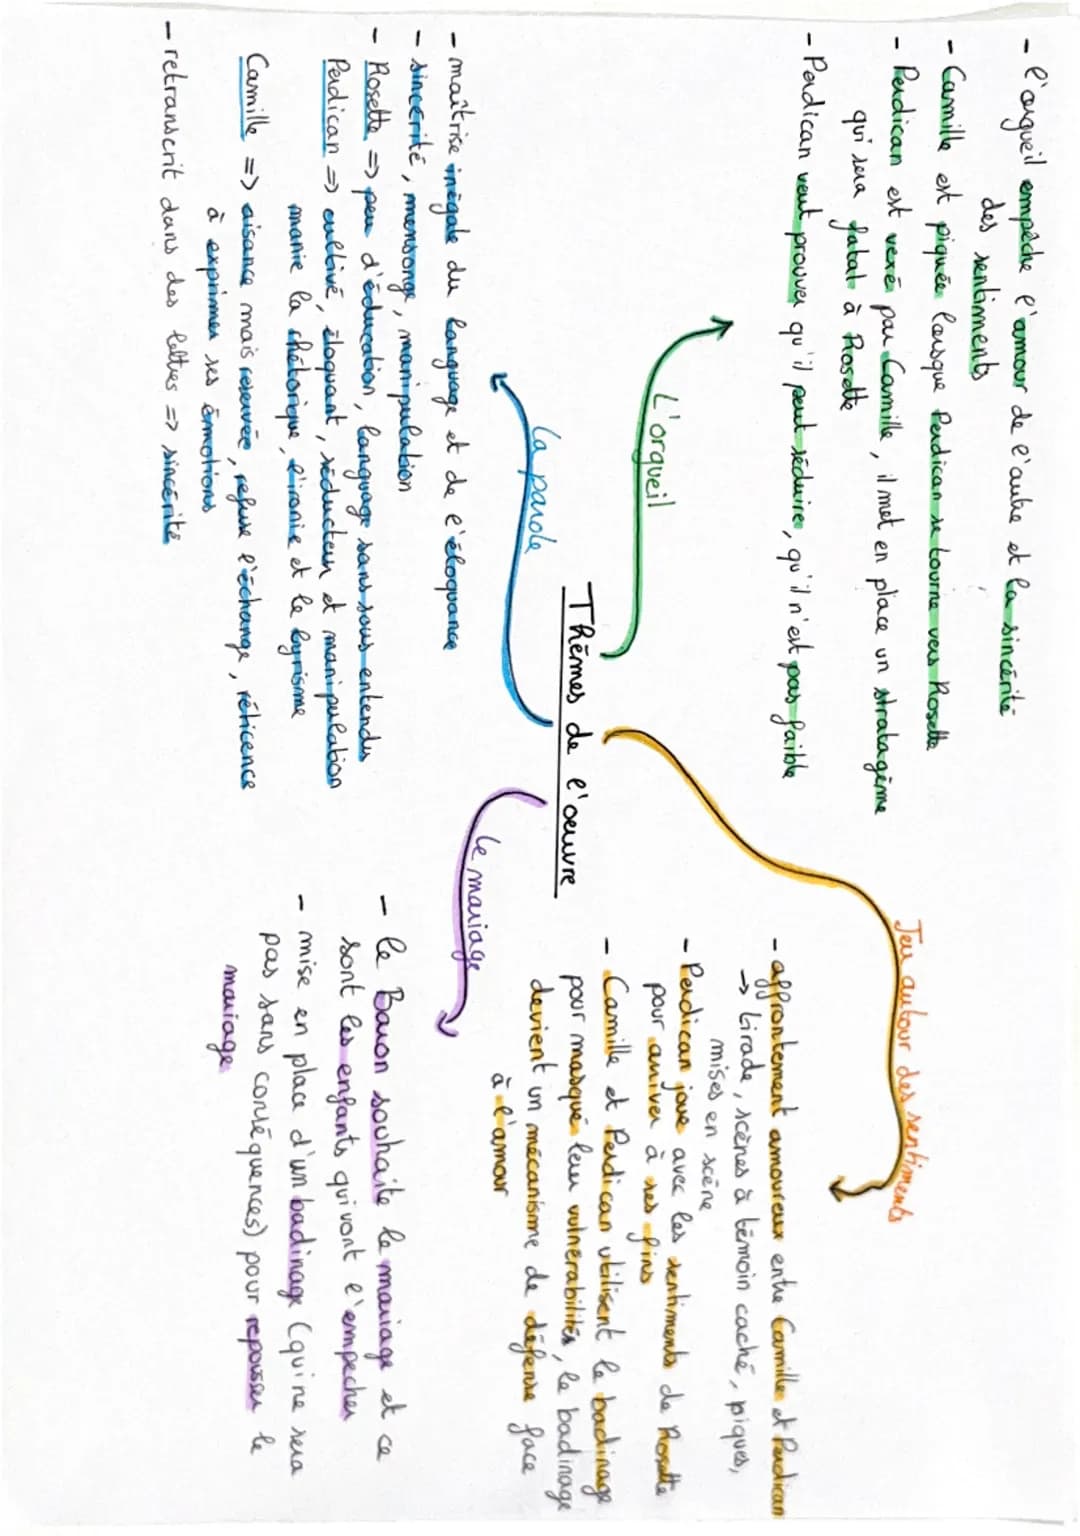 Thèmes de l'oeuvre
L'orgueil
- l'orgueil empêche l'amour de l'autre et la sincérité
des sentiments
- Camille est piquée lorsque Perdican se tourne vers Rosette
- Perdican est vexé par Camille, il met en place un stratagème
qui sera fatal à Rosette
- Perdican veut prouver qu'il peut séduire, qu'il n'est pas faible
Jeu autour des sentiments
- affrontement amoureux entre Camille et Perdican
-> tirade, scènes à témoin caché, piques,
mises en scène
- Perdican joue avec les sentiments de Rosette
pour arriver à ses fins
- Camille et Perdican utilisent le badinage
pour masqué leur vulnérabilités, le badinage
devient un mécanisme de défense face
à l'amour
La parole
- maîtrise inégale du language et de l'éloquance
- sincérité, mensonge, manipulation
- Rosette => peu d'éducation, language sans sous-entendus
Perdican => cultivé, éloquant, séducteur et manipulation
manie la rhétorique, l'ironie et le lyrisme
Camille => aisance mais réservée, refuse l'échange, réticence
à exprimer ses émotions
- retranscrit dans des lettres => sincérité
Le mariage
- le Baron souhaite le mariage et ce
sont les enfants qui vont l'empecher
- mise en place d'un badinage (qui ne sera
pas sans conséquences) pour repousser le
mariage